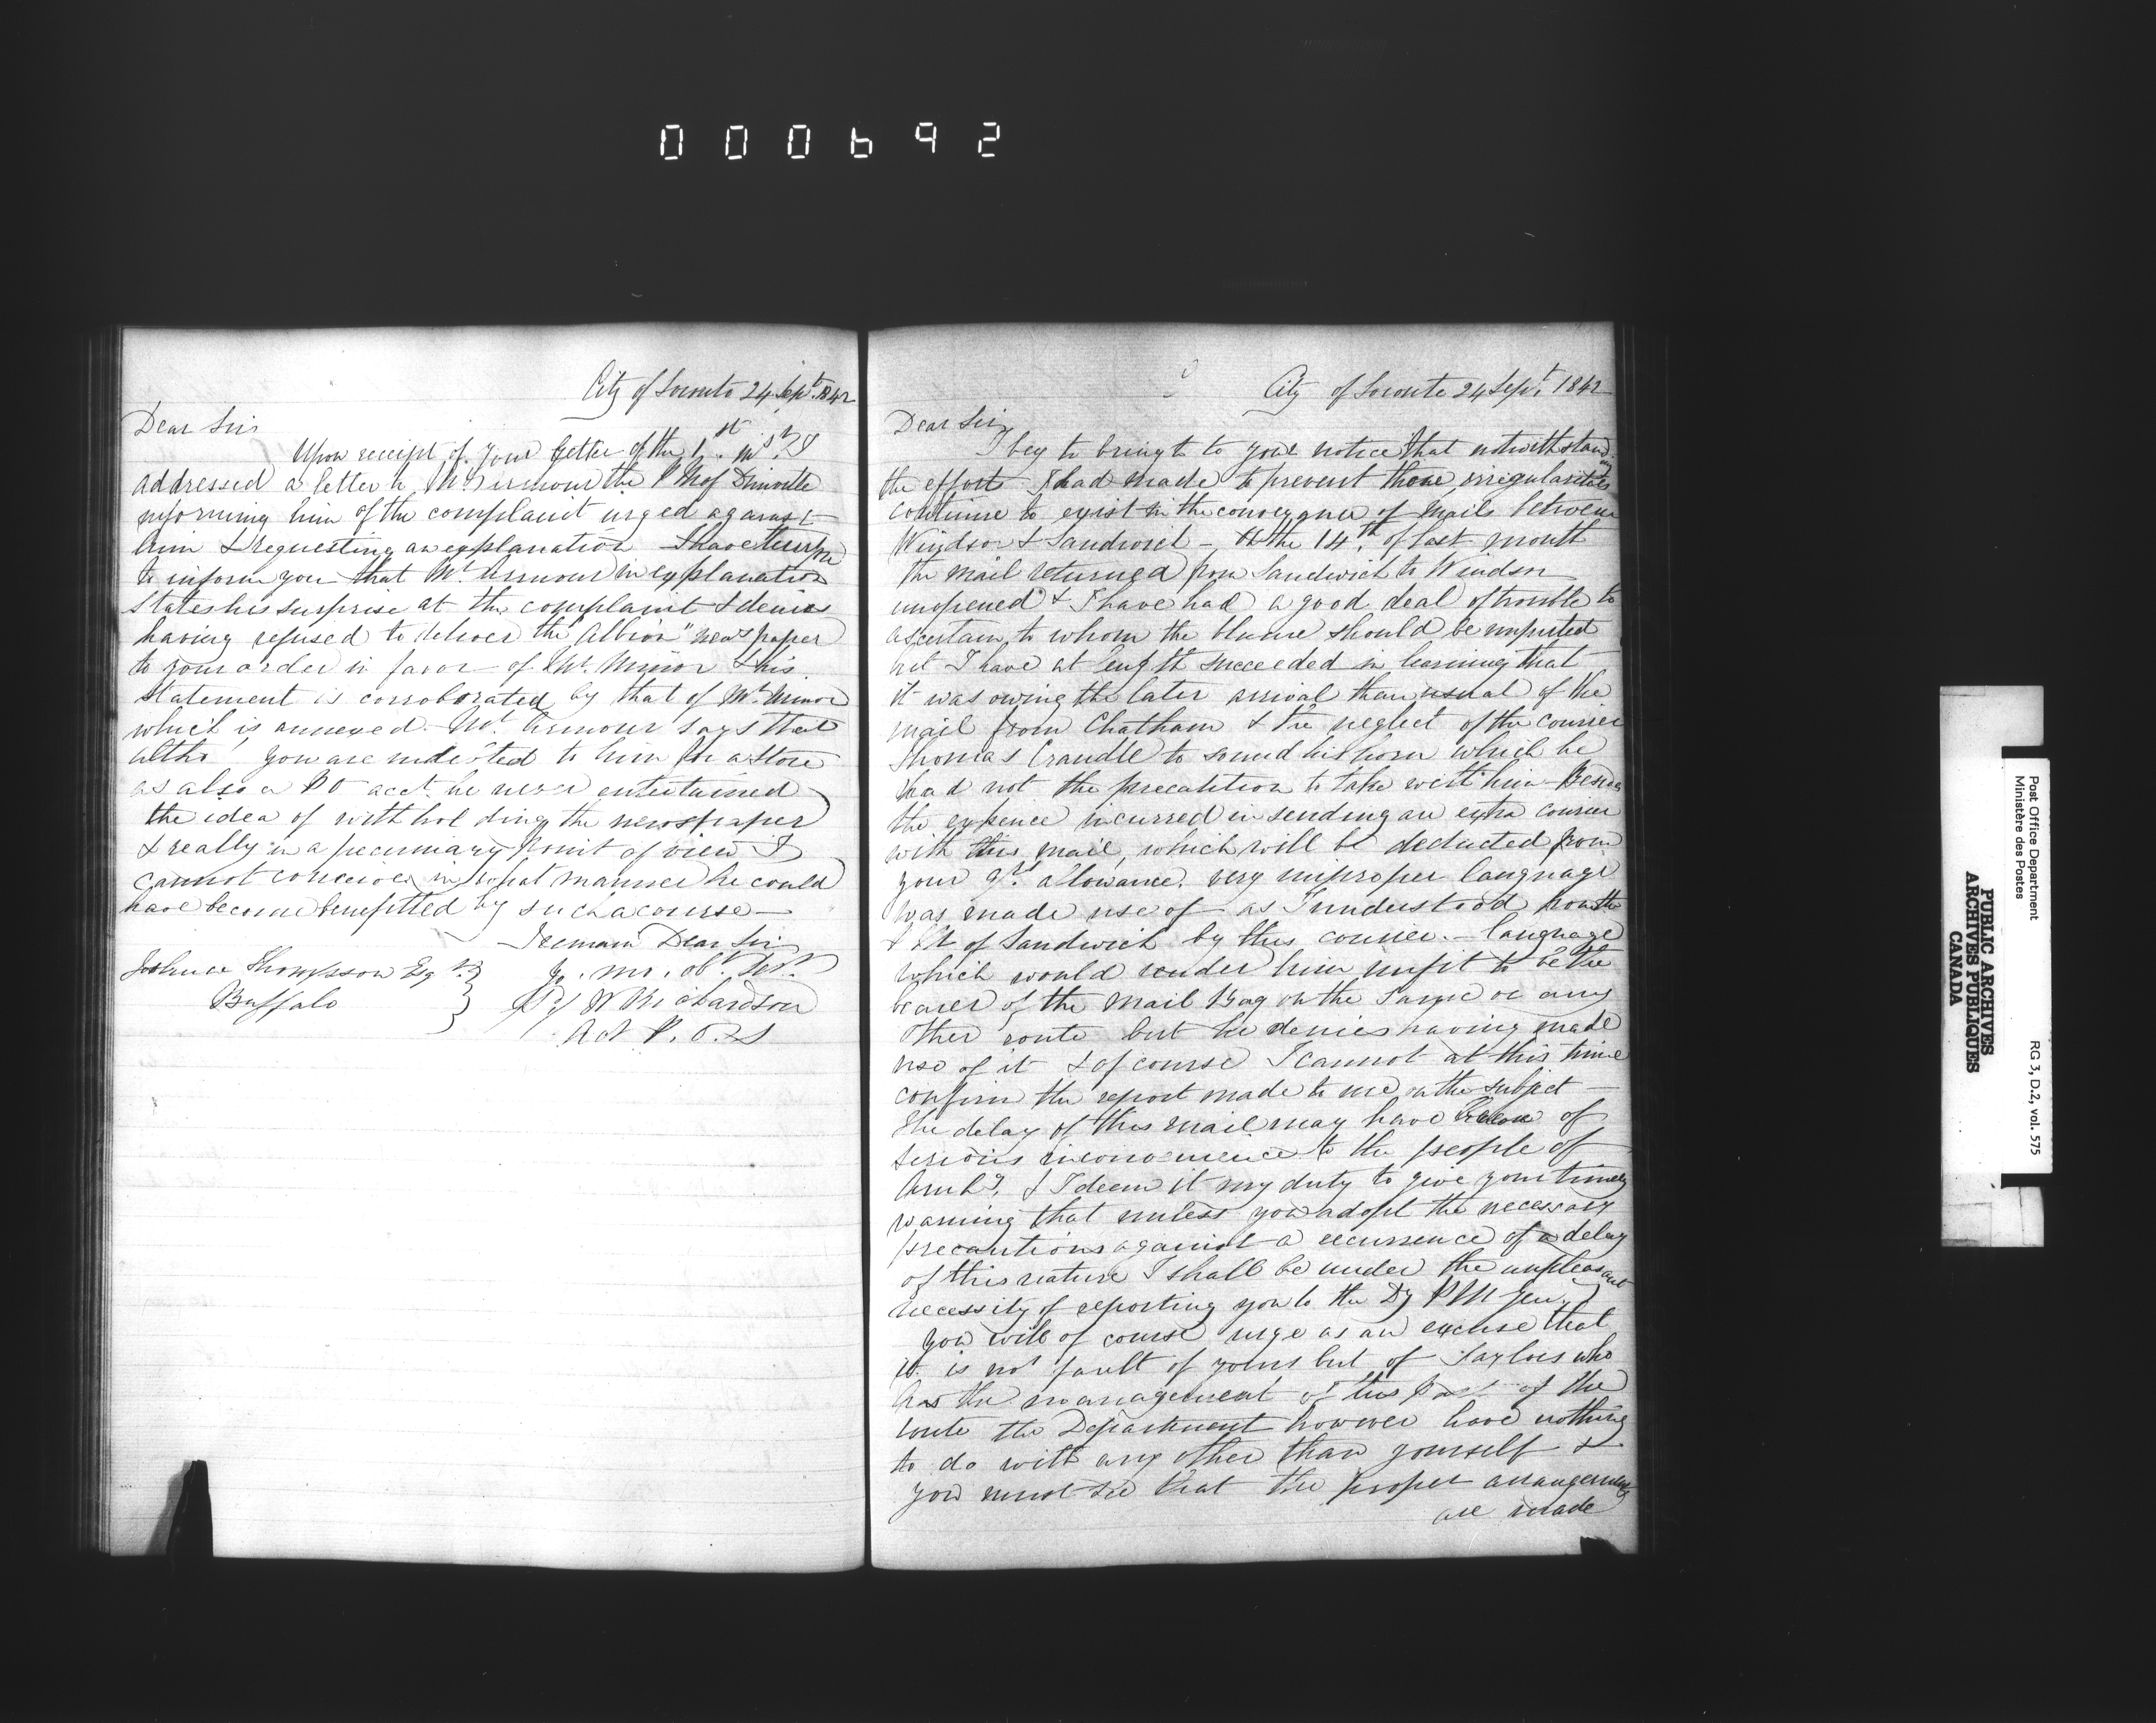 000692
City of Toronto 24 Sept. 1842
Dear Sir
Upon receipt of your letter of the 1st. inst. I
addressed a letter to Mr. Armour the P M of Dunville
informing him of the complaint urged against
him & requesting an explanation I have
to inform you that Mr. Armour in explanation
states his surprise at the complaint & denies
having refused to deliver the "Albion" newspaper
to your order in favor of Mr. Minor & his
statement is corroborated by that of Mr. Minor
which is annexed. Mr. Armour says that
altho' you are indebted to him for a Store
as also a P O acct. he never entertained
the idea of withholding the newspaper
& really in a pecuniary point of view I
cannot conceive in what manner he could
have become benefitted by such a course —
I remain Dear Sir
Yr. mo. obt. Sert.
Joshua Thompson Esqr.
Buffalo
W Richardson
Act P. O. S
City of Toronto 24 Sept. 1842
Dear Sir,
I beg to bring to your notice that notwithstanding
the effort I had made to prevent them, irregularities
continue to exist in the conveyance of Mails between
Windsor & Sandwich — On the 14th. of last month
the mail returned from Sandwich to Windsor
unopened & I have had a good deal of trouble to
ascertain to whom the blame should be imputed
but I have at length succeeded in learning that
it was owing the later arrival than usual of the
mail from Chatham & the neglect of the courier
Thomas Crandle to sound his horn which he
had not the precaution to take with him — Besides
the expence incurred in sending an extra courier
with this mail, which will be deducted from
your qr. allowance. very improper language
was made use of as I understood from the
P M of Sandwich by this courier. — language
which would render him unfit to be the
bearer of the Mail Bag on the same or any
other route but he denies having made
use of it & of course I cannot at this time
confirm the report made to me on the subject —
The delay of this mail may have been of
serious inconvenience to the people of
Amhg. & I deem it my duty to give you timely
warning that unless you adopt the necessary
precautions against a recurrence of a delay
of this nature I shall be under the unpleasant
necessity of reporting you to the Dy P M Gen.
You will of course urge as an excuse that
it is not fault of yours but of Taylors who
has the management of this part of the
route the Department however have nothing
to do with any other than yourself &
you must see that the proper arrangements
are made
Post Office Department
Ministère des Postes
RG 3, D.2, vol. 575
PUBLIC ARCHIVES
ARCHIVES PUBLIQUES
CANADA